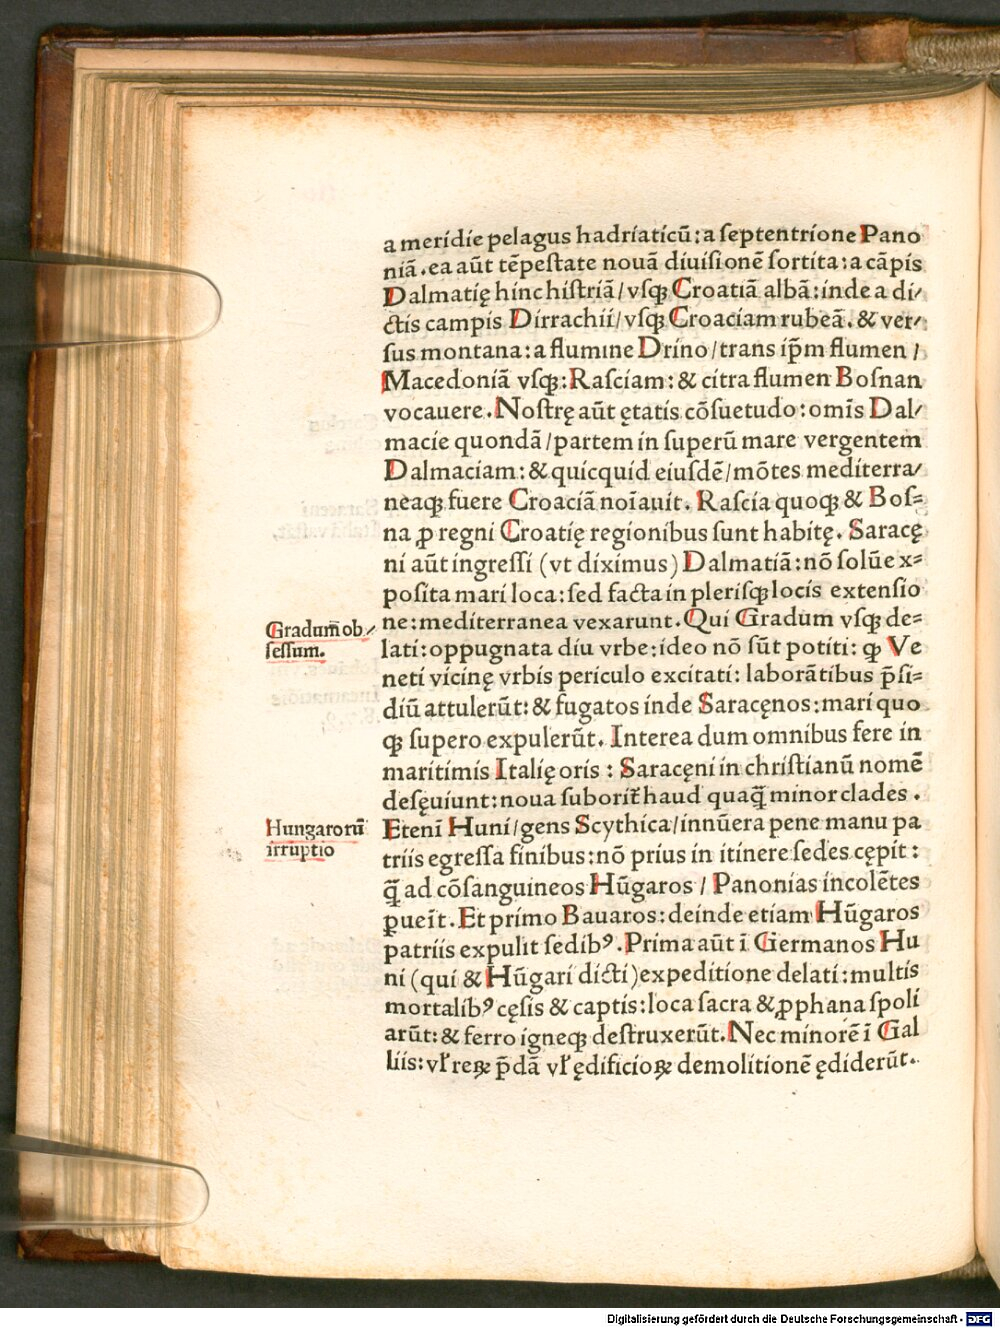 a meridie pelagus hadriaticū: a ſeptentrione Pano
niā. ea aūt tēpeſtate nouā diuiſionē ſortita: a cāpis
Dalmatię hinc hiſtriā/vſqꝫ Croatiā albā: inde a di/
ctis campis Dirrachii/vſqꝫ Croaciam rubeā. & ver/
ſus montana: a flumine Drino/trans ip̄m flumen/
Macedoniā vſqꝫ: Raſciam: & citra flumen Boſnan
vocauere. Noſtrę aūt ętatis cōſuetudo: omīs Dal/
macie quondā/partem in ſuperū mare vergentem
Dalmaciam: & quicquid eiuſdē/mōtes mediterra/
neaqꝫ fuere Croaciā noīauit. Raſcia quoqꝫ & Boſ=
na ꝓ regni Croatię regionibus ſunt habitę. Saracę
ni aūt ingreſſi (vt diximus) Dalmatiā: nō ſolū ex=
poſita mari loca: ſed facta in pleriſqꝫ locis extenſio
ne: mediterranea vexarunt. Qui Gradum vſqꝫ de=
Gradum̄ ob/
ſeſſum.
lati: oppugnata diu vrbe: ideo nō ſūt potiti: ꝙ Ve
neti vicinę vrbis periculo excitati: laborātibus p̄ſi=
diū attulerūt: & fugatos inde Saracęnos: mari quo
qꝫ ſupero expulerūt. Interea dum omnibus fere in
maritimis Italię oris: Saracęni in chriſtianū nomē
deſęuiunt: noua ſuborit̄ haud quaq̄ minor clades.
Hungarorū
irruptio
Etenī Huni/gens Scythica/innūera pene manu pa
triis egreſſa finibus: nō prius in itinere ſedes cępit:
q̄ ad cōſanguineos Hūgaros/Panonias incolētes
ꝑueīt. Et primo Bauaros: deinde etiam Hūgaros
patriis expulit ſedibꝰ. Prima aūt ī Germanos Hu
ni (qui & Hūgari dicti) expeditione delati: multis
mortalibꝰ cęſis & captis: loca ſacra & ꝓphana ſpoli
arūt: & ferro igneqꝫ deſtruxerūt. Nec minorē ī Gal
liis: vl̄ reꝝ p̄dā vl̄ ędificioꝝ demolitionē ędiderūt.
Digitalisierung gefördert durch die Deutsche Forschungsgemeinschaft - DFG